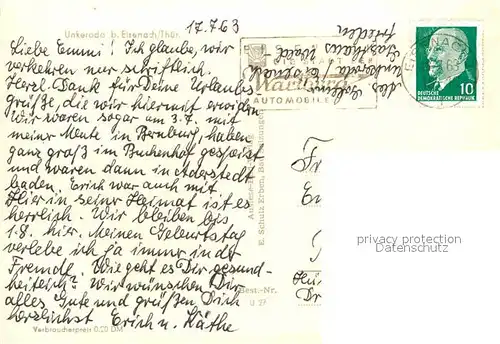 Unkeroda b. Eisenach/Thür.
17.7.63
Liebe Emmi! Ich glaube, wir
verkehren nur schriftlich.
Herzl. Dank für Deine Urlaubs
grüße, die wir hiermit erwidern
Wir waren sogar am 3.7. mit
meiner Meute in Bernburg, haben
ganz groß im Buchenhof gespeist
und waren dann in Aderstedt
baden. Erich war auch mit
Hier in seiner Heimat ist es
herrlich. Wir bleiben bis
1.8. hier. Meinen Geburtstag
verlebe ich ja immer in der
Fremde. Wie geht es Dir gesund-
heitlich? Wir wünschen Dir
alles Gute und grüßen Dich
herzlichst Erich u. Käthe
Verbraucherpreis 0,20 DM
Best.-Nr.
U 27
E. Schulz Erben,
Wartburg
AUTOMOBILE
Unkeroda
Gasthaus Wald-
frieden
EISENACH
10
DEUTSCHE
DEMOKRATISCHE REPUBLIK
Fr
privacy protection
Datenschutz